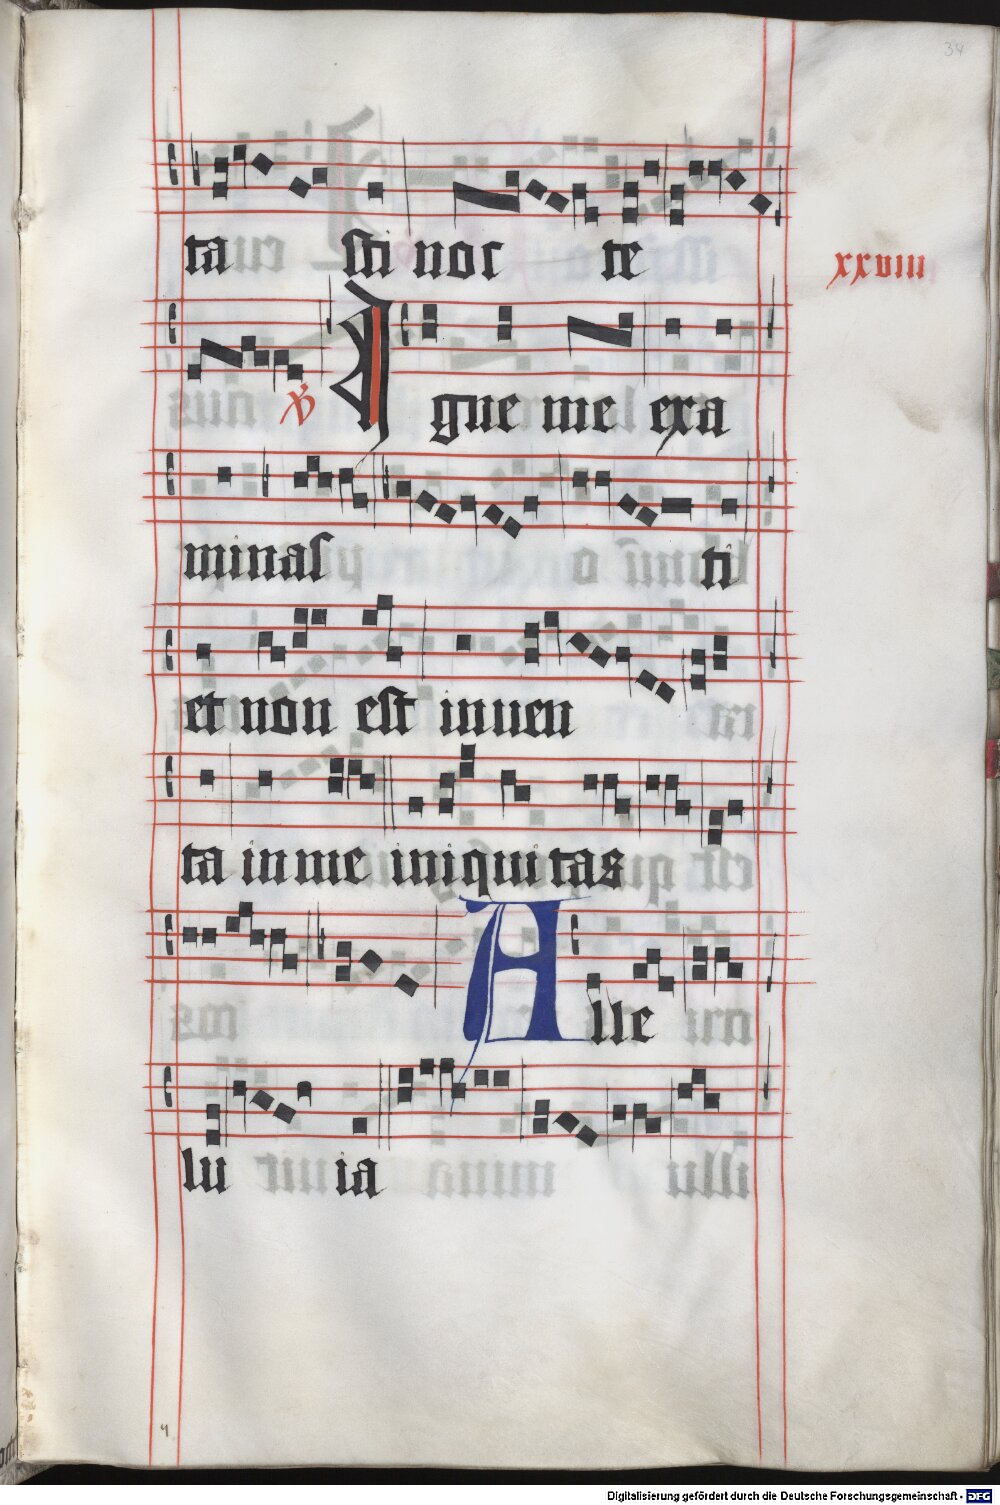 34
ta sti noc te
xxviii
℣ Igne me exa
minasti
et non est inuen
ta in me iniquitas
Alle
lu ia
4
Digitalisierung gefördert durch die Deutsche Forschungsgemeinschaft - DFG